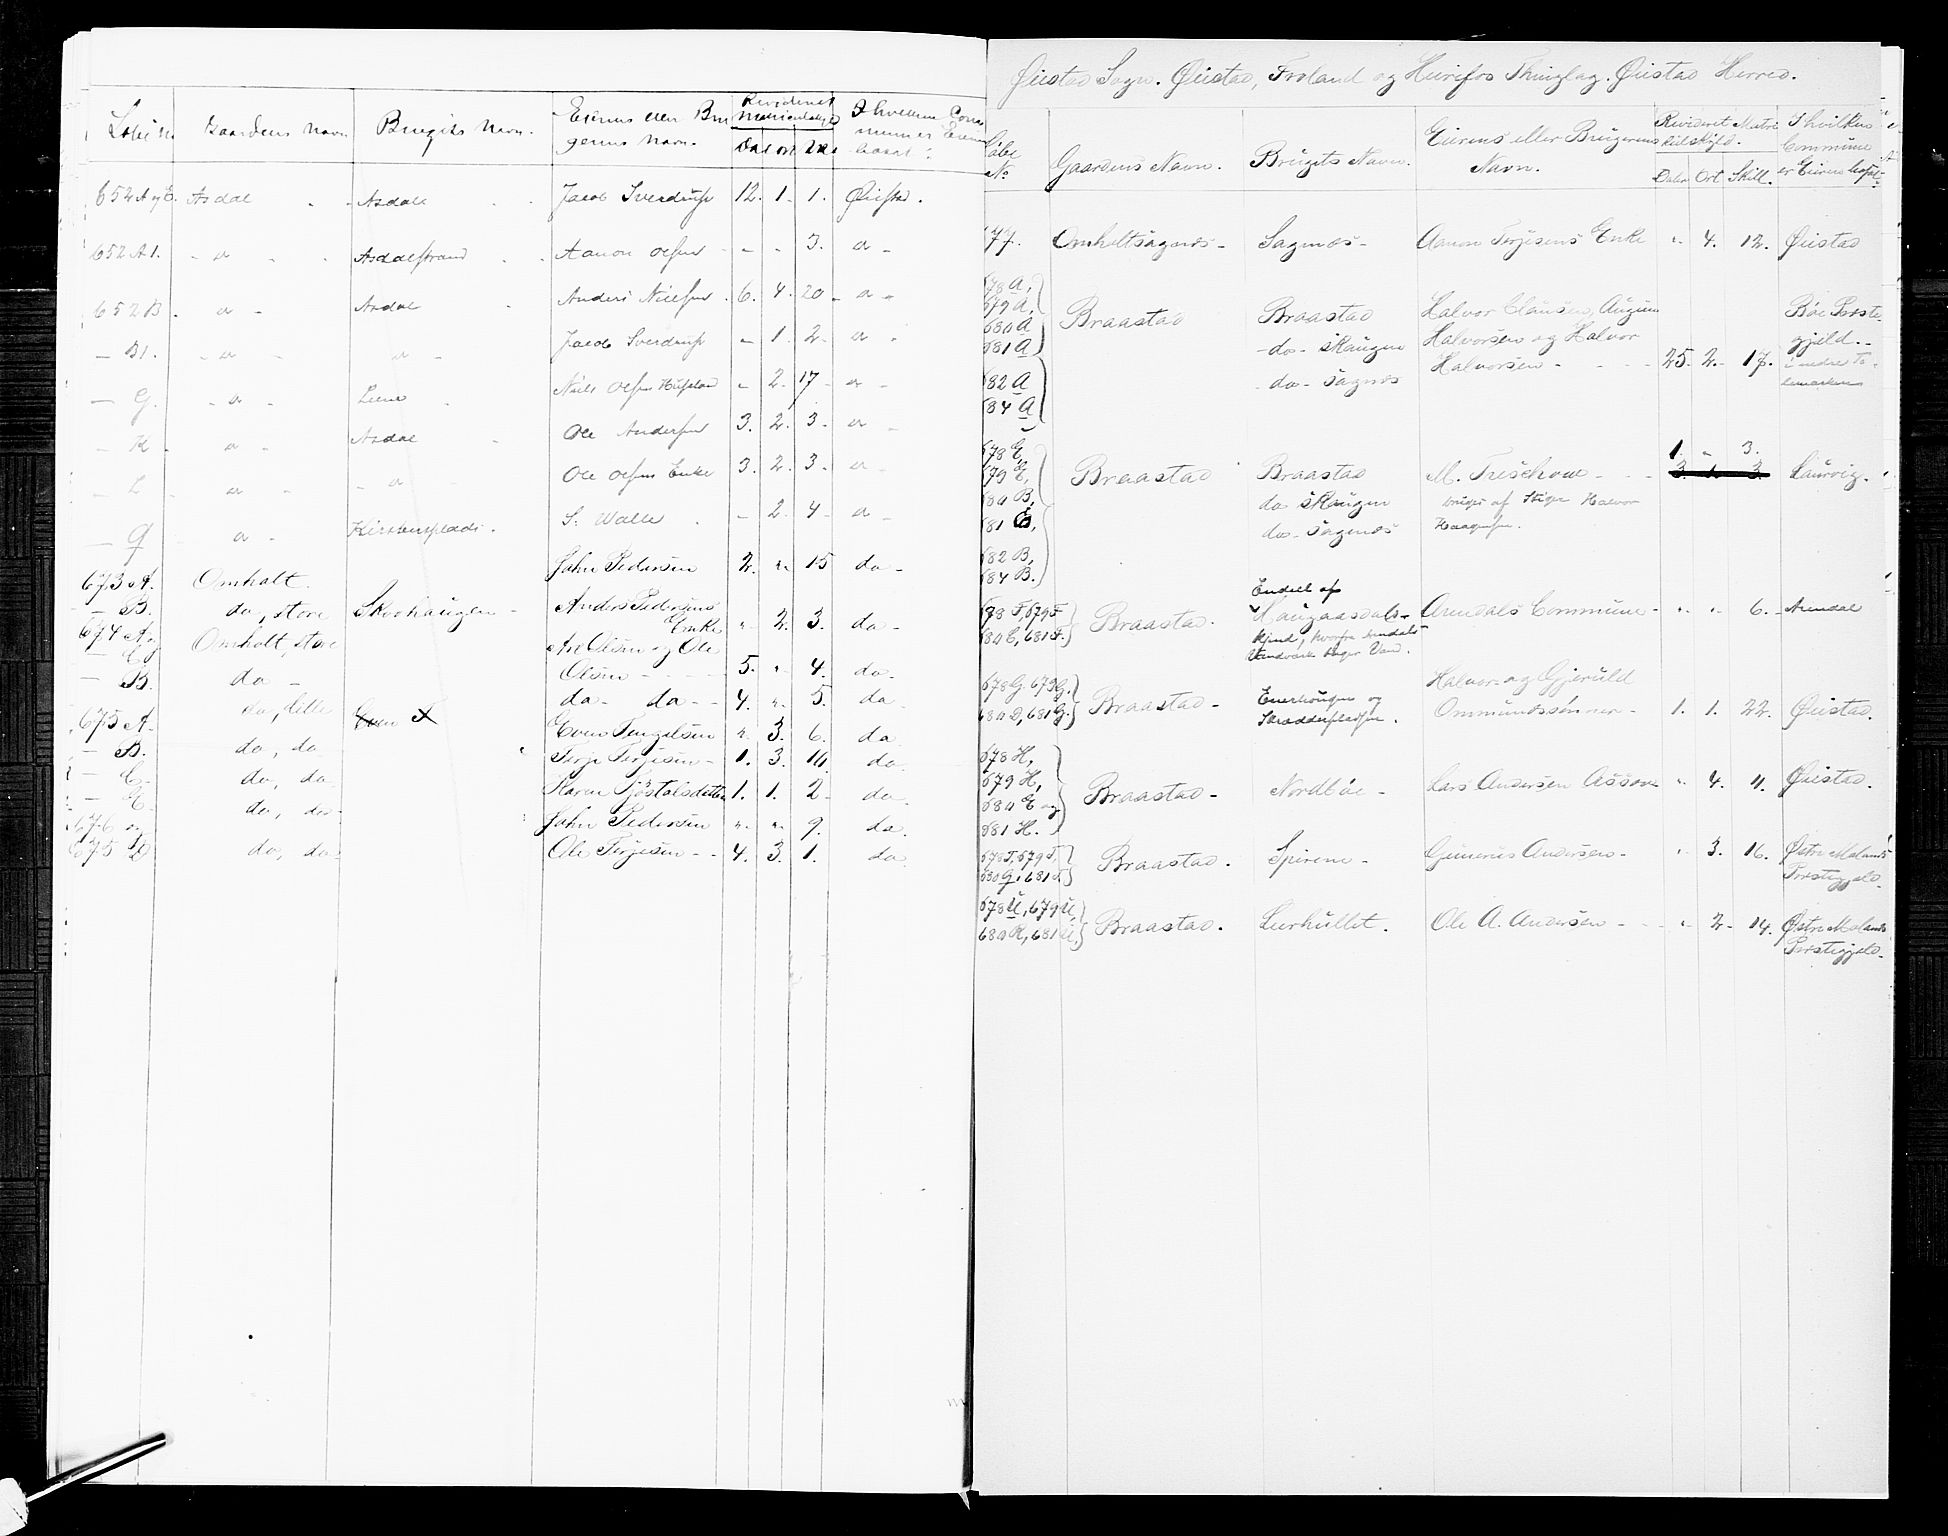 Løbe No Gaardens Navn Brugets Navn. Eierens eller Bru
gerens Navn. Revideret
Matrikulskyld
Dal. Ort Sk. I hvilken Com
mune er Eieren
bosat?
652 A og E. Asdal - Asdal Jacob Sverdrup 12. 1. 1. Øiestad.
652 A1. - a - Asdalstrand Aanon Olsen - - 3. a -
652 B. a - Asdal Anders Nielsen 6. 4. 20 - a -
- B1. - a - a - Jacob Sverdrup - 1. 2. a -
- G. - a - Niels Olsen - 2. 17 - a -
- K. a - Asdal Ole Andersen 3. 2. 3. a -
- L. a - - a - Ole Olsens Enke 3. 2. 3. a -
- Q a - Kirstensplads. S. Walle - 2. 4 - a -
673 A. Omholt. John Pedersen 2. " 15 do -
- B. do, store Skovhaugen - Anders Pedersens
Enke " 2. 3. do -
674 A og Omholt, store Ole
- C og Olsen - - - 5. " 4. do.
- B. do - do - do - - 4. " 5. do
675 A. do, lille Even Tengelsen " 3. 6. do
- B. do, do Terje Terjesen - 1. 3. 16 do.
- C. do, do Karen 1. 1. 2 - do.
- E. do, do - John Pedersen " " 9. do.
676 og
675 D do, do Ole Terjesen - - 4. 3. 1. do
Øiestad Sogn. Øiestad, Froland og Hirefos Thinglag. Øiestad Herred.
Løbe
No Gaardens Navn. Brugets Navn. Eierens eller Brugerens
Navn. Revideret Matri
kulskyld.
Daler Ort Skill. I hvilken
Commune
er Eieren bosat?
77. Omholtsagnæs - Sagnæs - Aanon Terjesens Enke " 4. 12. Øiestad
678 A,
679 A,
680 A
681 A
682 A
684 A
Braastad Braastad
- do - Skaugen
- do - Sagnæs
Halvor Clausen,
Halvorsen og Halvor
Halvorsen - - - 25. 2. 17. Bøe Præste-
gjeld.
i nedre Te-
lemarken
678 E,
679 E,
680 B,
681 B,
682 B,
684 B.
Braastad Braastad
do Skaugen
do - Sagnæs
M. Treschow - - -
bruges af Halvor
Haagensen.
1. " 3.
3. 1. 3.
Laurvig.
678 F, 679 F
680 C, 681 F.
Braastad. Endeel af
Haugaasdals-
kjend, hvorfra Arendals
Vandværk tager Vand.
Arendals Commune - " " 6. - Arendal
678 G. 679 G.
680 D, 681 G.
Braastad - Enerhougen og
Skrædderpladsen.
Halvor og Gjeruld
Ommundssønner - 1. 1. 22. Øiestad.
678 H,
679 H,
680 E og
681 H.
Braastad - Nordbøe - Lars Andersen Assow " 4. 4. Øiestad.
678 T, 679 T,
680 Q, 681 T.
Braastad. Spirene - Gunerius Andersen - " 3. 16. Østre Molands
Præstegjeld.
678 U, 679 U,
680 R, 681 U,
Braastad. Leerhullet. Ole A. Andersen - - " 2 - 14. Østre Molands
Præstegjeld.